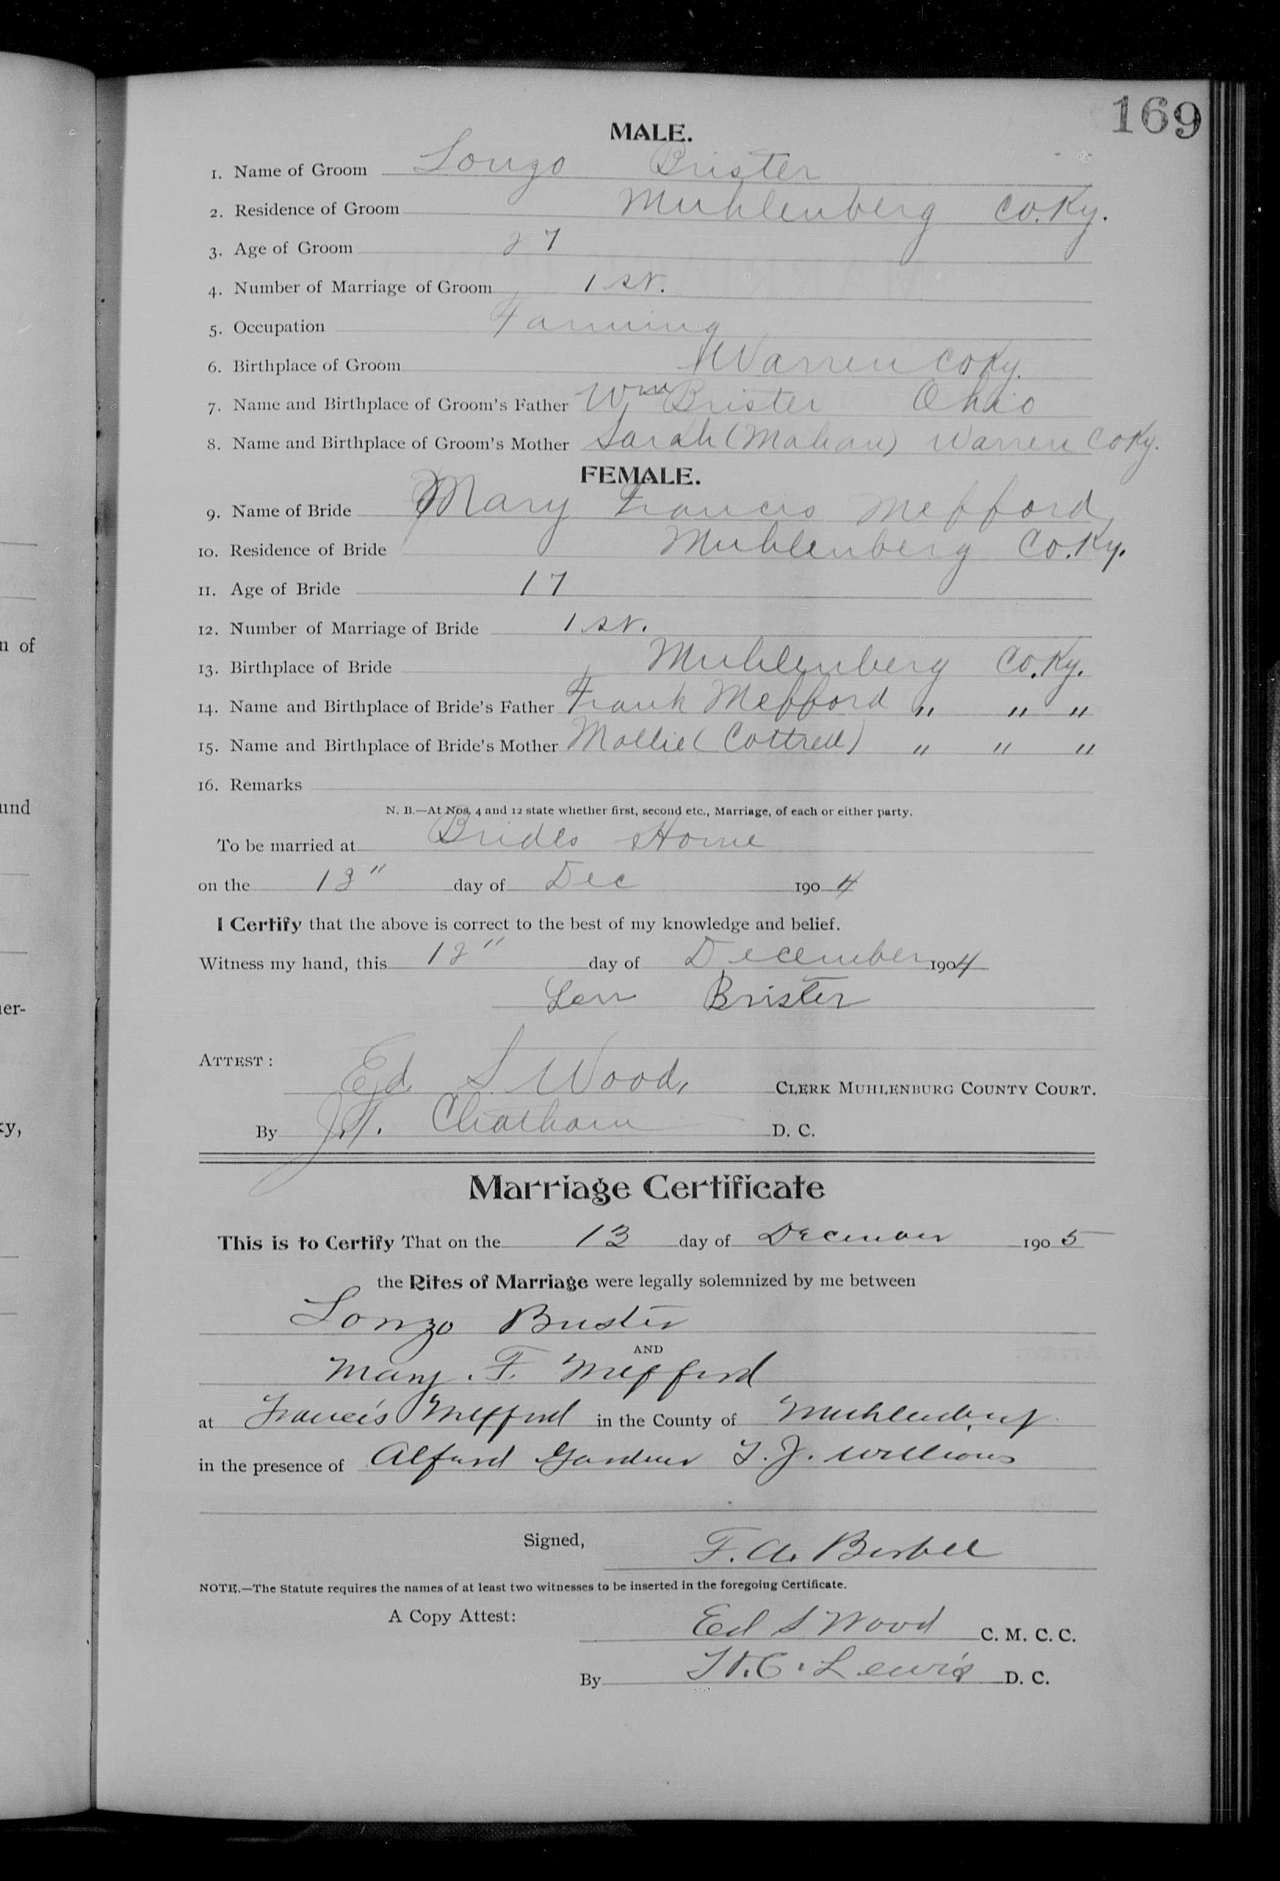 169
MALE.
1. Name of Groom Longo Brister
2. Residence of Groom Muhlenberg Co. Ky.
3. Age of Groom 27
4. Number of Marriage of Groom 1 st.
5. Occupation Farming
6. Birthplace of Groom Warren Co Ky.
7. Name and Birthplace of Groom's Father Wm Brister Ohio
8. Name and Birthplace of Groom's Mother Sarah (Mahan) Warren Co Ky.
FEMALE.
9. Name of Bride Mary Francis Mefford
10. Residence of Bride Muhlenberg Co. Ky.
11. Age of Bride 17
12. Number of Marriage of Bride 1 st.
n of
13. Birthplace of Bride Muhlenberg Co. Ky.
14. Name and Birthplace of Bride's Father Frank Mefford " " "
15. Name and Birthplace of Bride's Mother Mollie (Cottrell) " " "
16. Remarks
und
N. B.—At Nos. 4 and 12 state whether first, second etc., Marriage, of each or either party.
To be married at Brides Home
on the 13" day of Dec 1904
I Certify that the above is correct to the best of my knowledge and belief.
Witness my hand, this 12" day of December 1904
Lon Brister
er-
ATTEST: Ed S Wood, CLERK MUHLENBURG COUNTY COURT.
ky,
By J.T. Chatham D. C.
Marriage Certificate
This is to Certify That on the 13 day of December 1905
the Rites of Marriage were legally solemnized by me between
Lonzo Brister
AND
Mary. F. Mefford
at Francis Mefford in the County of Muhlenburg
in the presence of Alfurd Gardner T. J. Williams
Signed, F. A.
NOTE.—The Statute requires the names of at least two witnesses to be inserted in the foregoing Certificate.
A Copy Attest: Ed S Wood C. M. C. C.
By Lewis D. C.